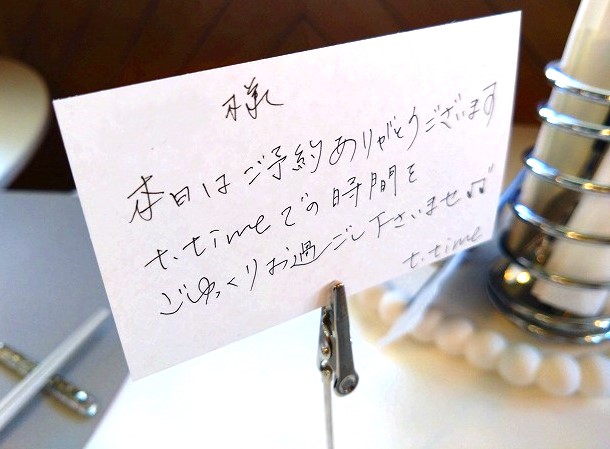 様
本日はご予約ありがとうございます
t.timeでの時間を
ごゆっくりお過ごし下さいませ♫"
t.time